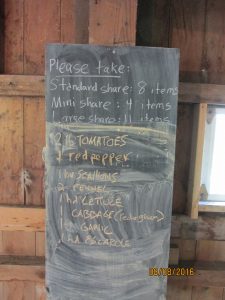 Please take:
Standard share: 8 items
Mini share: 4 items
Large share: 11 items
2 lb TOMATOES
red pepper
1 bu SCALLIONS
2 FENNEL
1 hd LETTUCE
CABBAGE (red or green)
GARLIC
1 hd ESCAROLE
08/08/2016